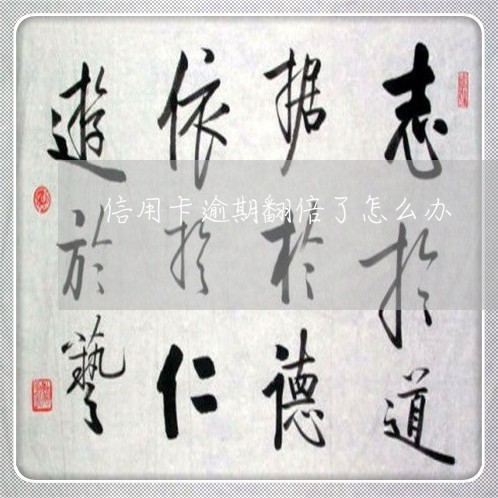 志於道
据於德
依於仁
遊於藝
信用卡逾期翻倍了怎么办